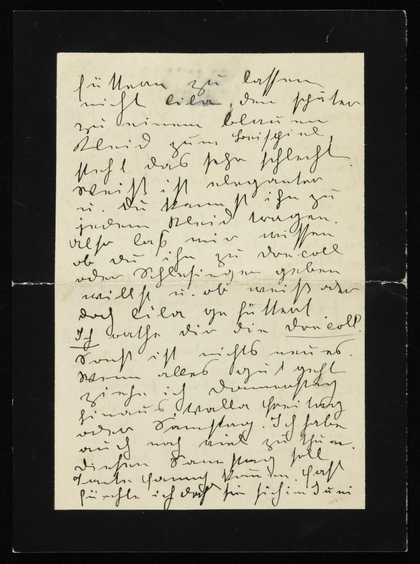 füttern zu lassen
nicht lila, den später
zu einem blauen
Kleid zum Beispiel
steht das sehr schlecht.
Weiß ist eleganter
u. du kannst ihn zu
jedem Kleid tragen.
Also laß mir wissen
ob du ihn zu Doucoll
oder Schlesinger geben
willst u. ob weiß oder
doch lila gefüttert.
Ich rathe dir die Doucoll.
Sonst ist nichts neues.
Wenn alles gut geht
ziehe ich Donnerstag
hinaus Freitag
oder Samstag. Ich habe
auch noch viel zu thun.
Diesen Samstag soll
Tante kommen. Fast
fürchte ich doch sie im Juni